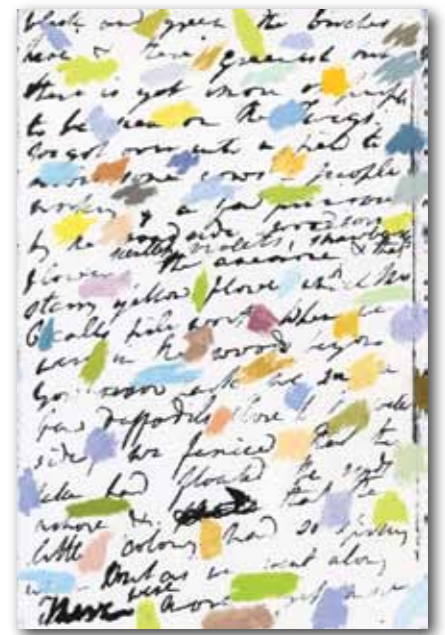 black and green, the birches
here & there greenish but
there is yet more of purple
to be seen on the Twigs.
We got over into a field to
avoid some cows - people
working, a few primroses
by the road side, woodsorrel
scentless violets, strawberries
flower the anemone & that
starry yellow flower which Mrs
C calls pile wort. When we
were in the woods beyond
park we saw a
few daffodils close to the water
side, we fancied that the
lake had floated the seeds
ashore & that the
little colony had so sprung
up But as we went along
There were more yet more